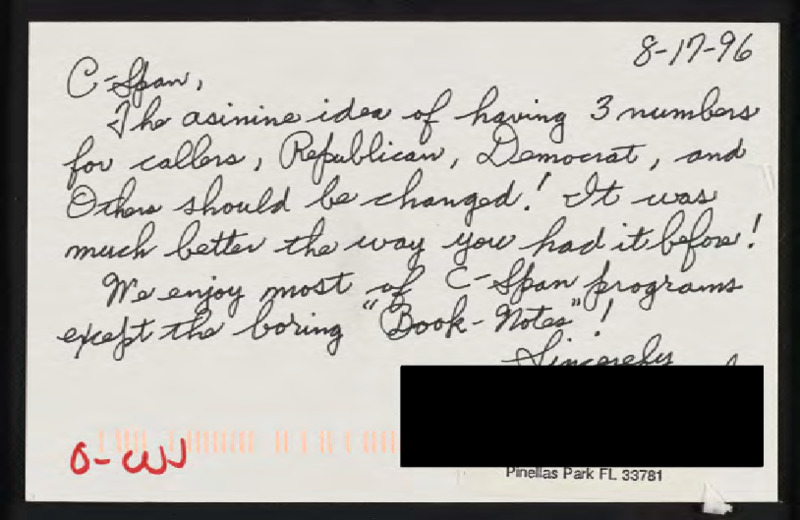 8-17-96
C-Span,
The asinine idea of having 3 numbers
for callers, Republican, Democrat, and
Others should be changed! It was
much better the way you had it before!
We enjoy most of C-Span programs
except the boring "Book-Notes"!
Sincerely
Pinellas Park FL 33781